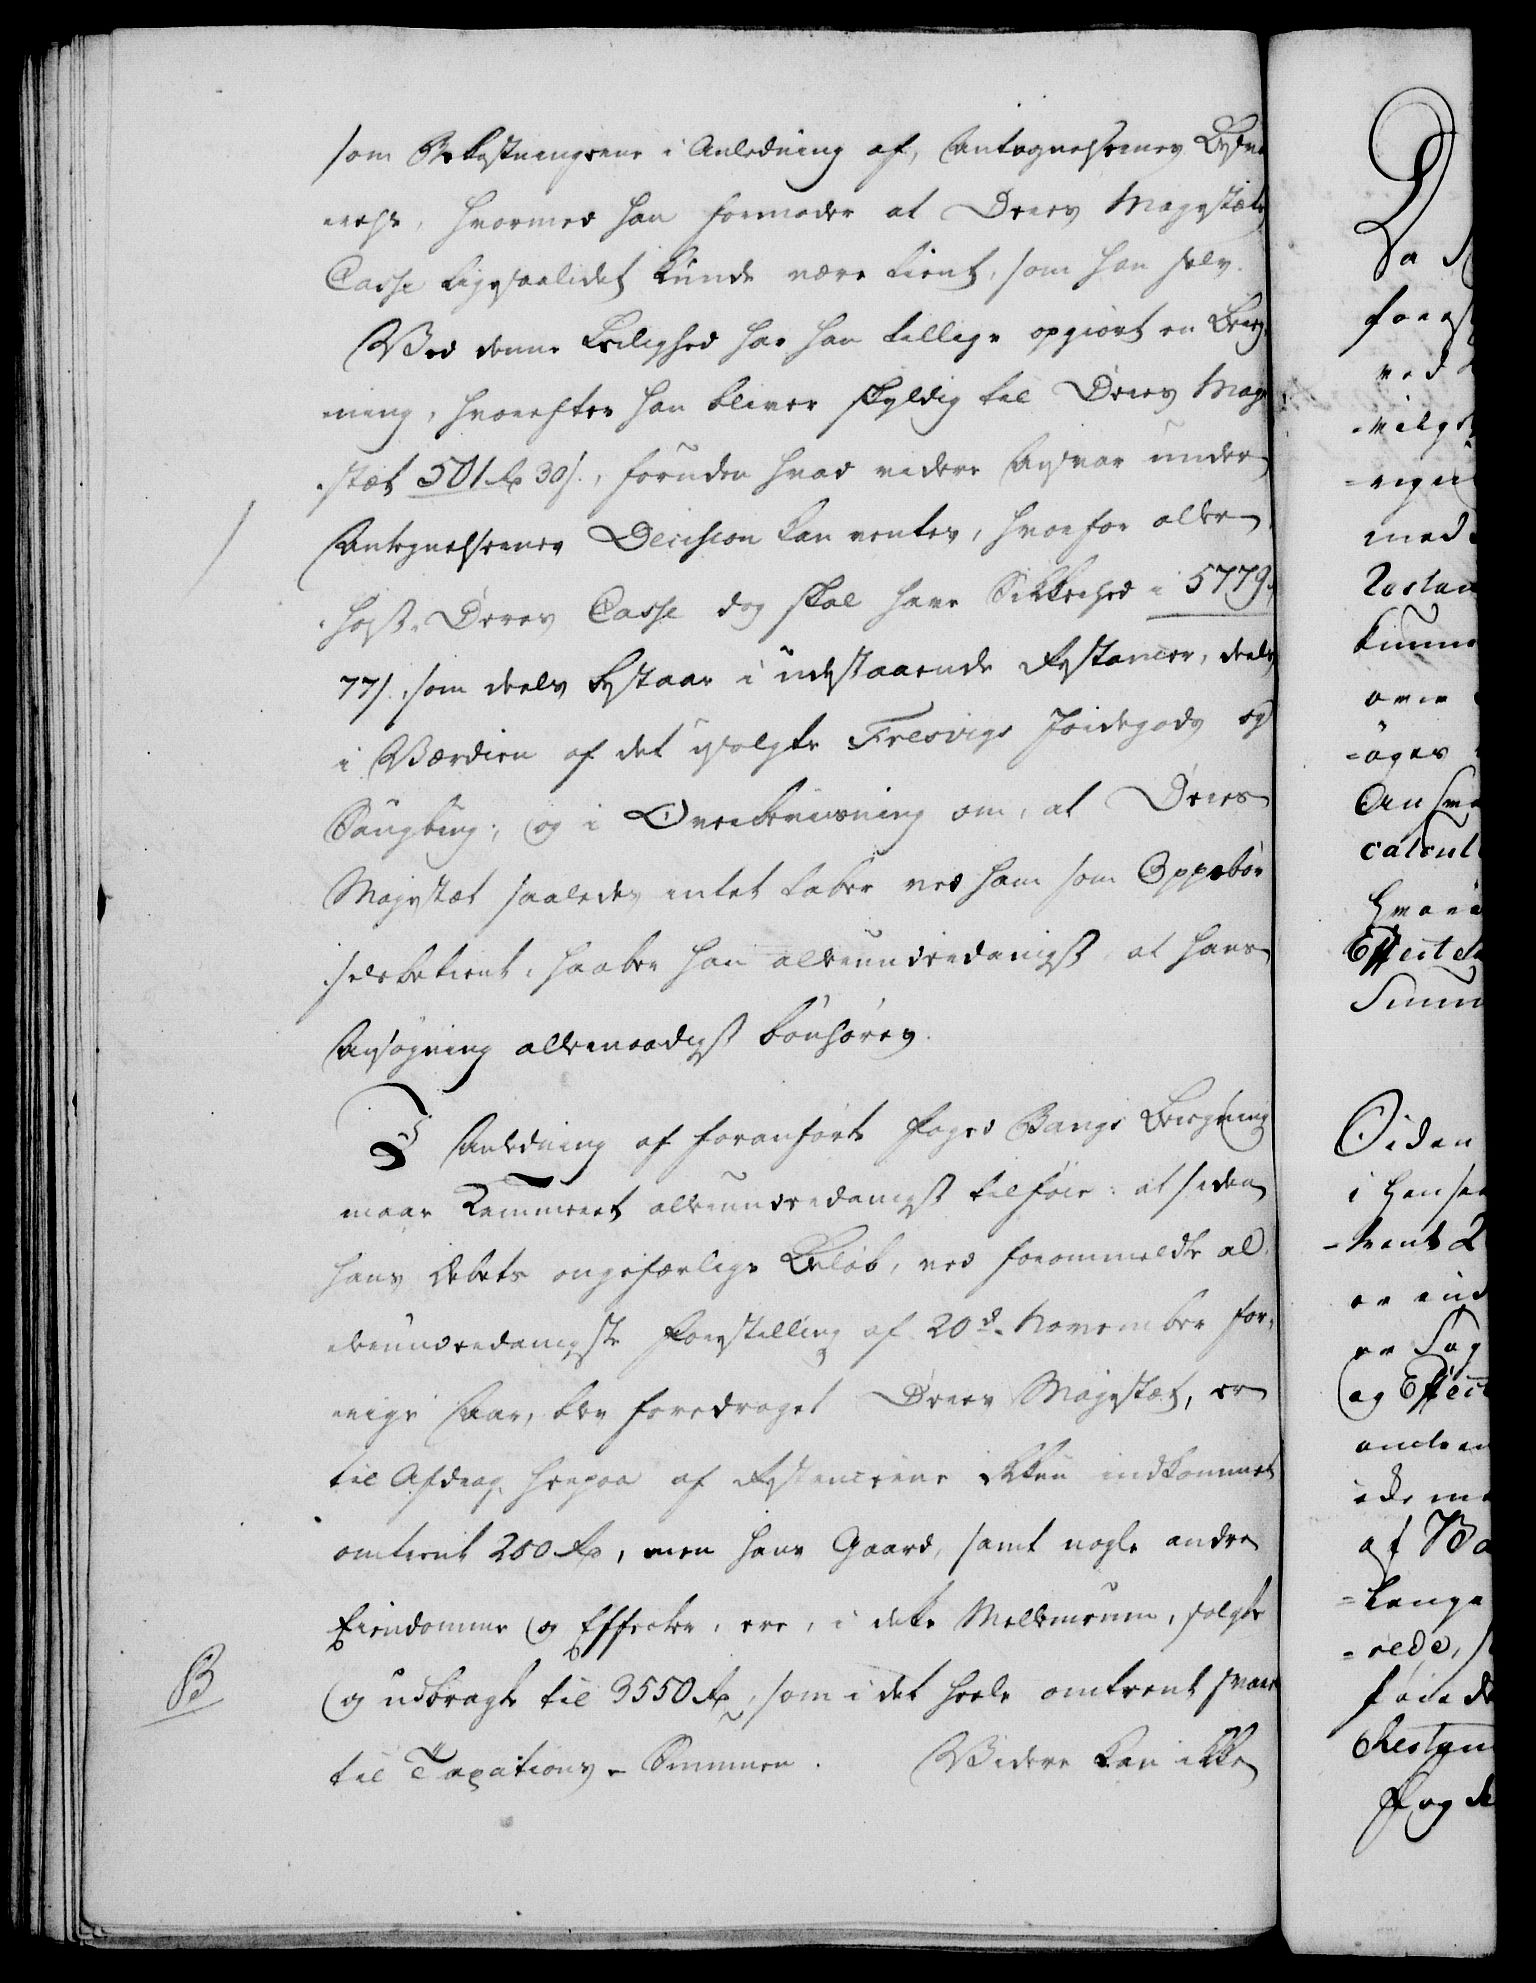 som Bekostningerne i Anledning af, Antegnelsernes Besva
relse, hvormed han formoder at Deres Majestæts
Casse ligesaalidet kunde være tient, som han selv.
Ved denne Leilighed har han tillige opgiort en Bereg-
ning, hvorefter han bliver skyldig til Deres Maje
stæt 501 Rd 30 s., foruden hvad videre Ansvar under
Antegnelsernes Decision kan ventes, hvorfor aller
høist Deres Casse dog skal have Sikkerhed i 5779
77 s. som deels bestaar i udestaaende Restancer, deels
i Værdien af det usolgte Fresvigs Jordegods og
Saugbrug; og i Overbeviisning om, at Deres
Majestæt saaledes intet taber ved ham som Oppebør
selsbetient, haaber han allerunderdanigst at hans
Ansøgning allernaadigst bønhøres.
I Anledning af foranførte Foged Bangs Beregning
maae Kammeret allerunderdanigst tilføie: at siden
hans Debets ongefærlige Beløb, ved forommeldte al
lerunderdanigste Forestilling af 20d. November for-
rige Aar, blev foredraget Deres Majestæt, er
til Afdrag herpaa af Restancerne ikkun indkommet
omtrent 200 Rd, men hans Gaard, samt nogle andre
Eiendomme og Effecter, ere, i dette Mellemrum, solgte
og udbragte til 3550 Rd, som i det heele omtrent svare
til Taxations-Summen. Videre kan ikke
B
Da
forest
ved
med
Restan
kunne
over
calcul
Effecter
Summ
Siden
i Hensee
er ind
og Effect
af Ba
længe
rede, s
Restan